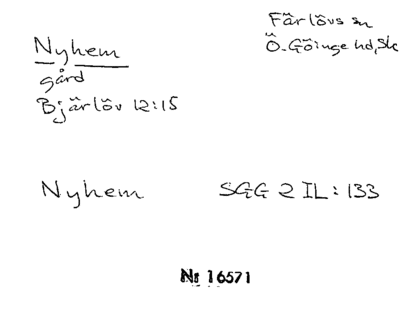 Nyhem
gård
Bjärlöv 12:15
Färlövs sn
Ö. Göinge hd, Sk
Nyhem SGG 2 IL: 133
Nr 16571